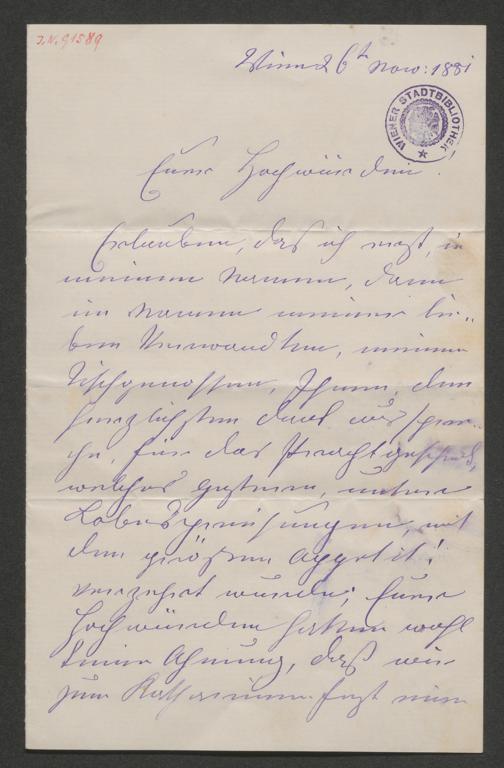 J.N. 91589
Wien d 6t Nov: 1881
WIENER STADTBIBLIOTHEK
Euer Hochwürden!
Erlauben, daß ich erst, in
meinem Namen, dann
im Namen meiner lie„
ben Verwandten, meiner
Tischgenossen, Ihnen, den
herzlichsten Dank ausspre„
che, für das Prachtgeschenk,
welches gestern, unter
Lobespreisungen, mit
dem größten Appetit!
verzehrt wurde; Euer
Hochwürden hatten wohl
keine Ahnung, daß wir
zum Katharinen fest einen